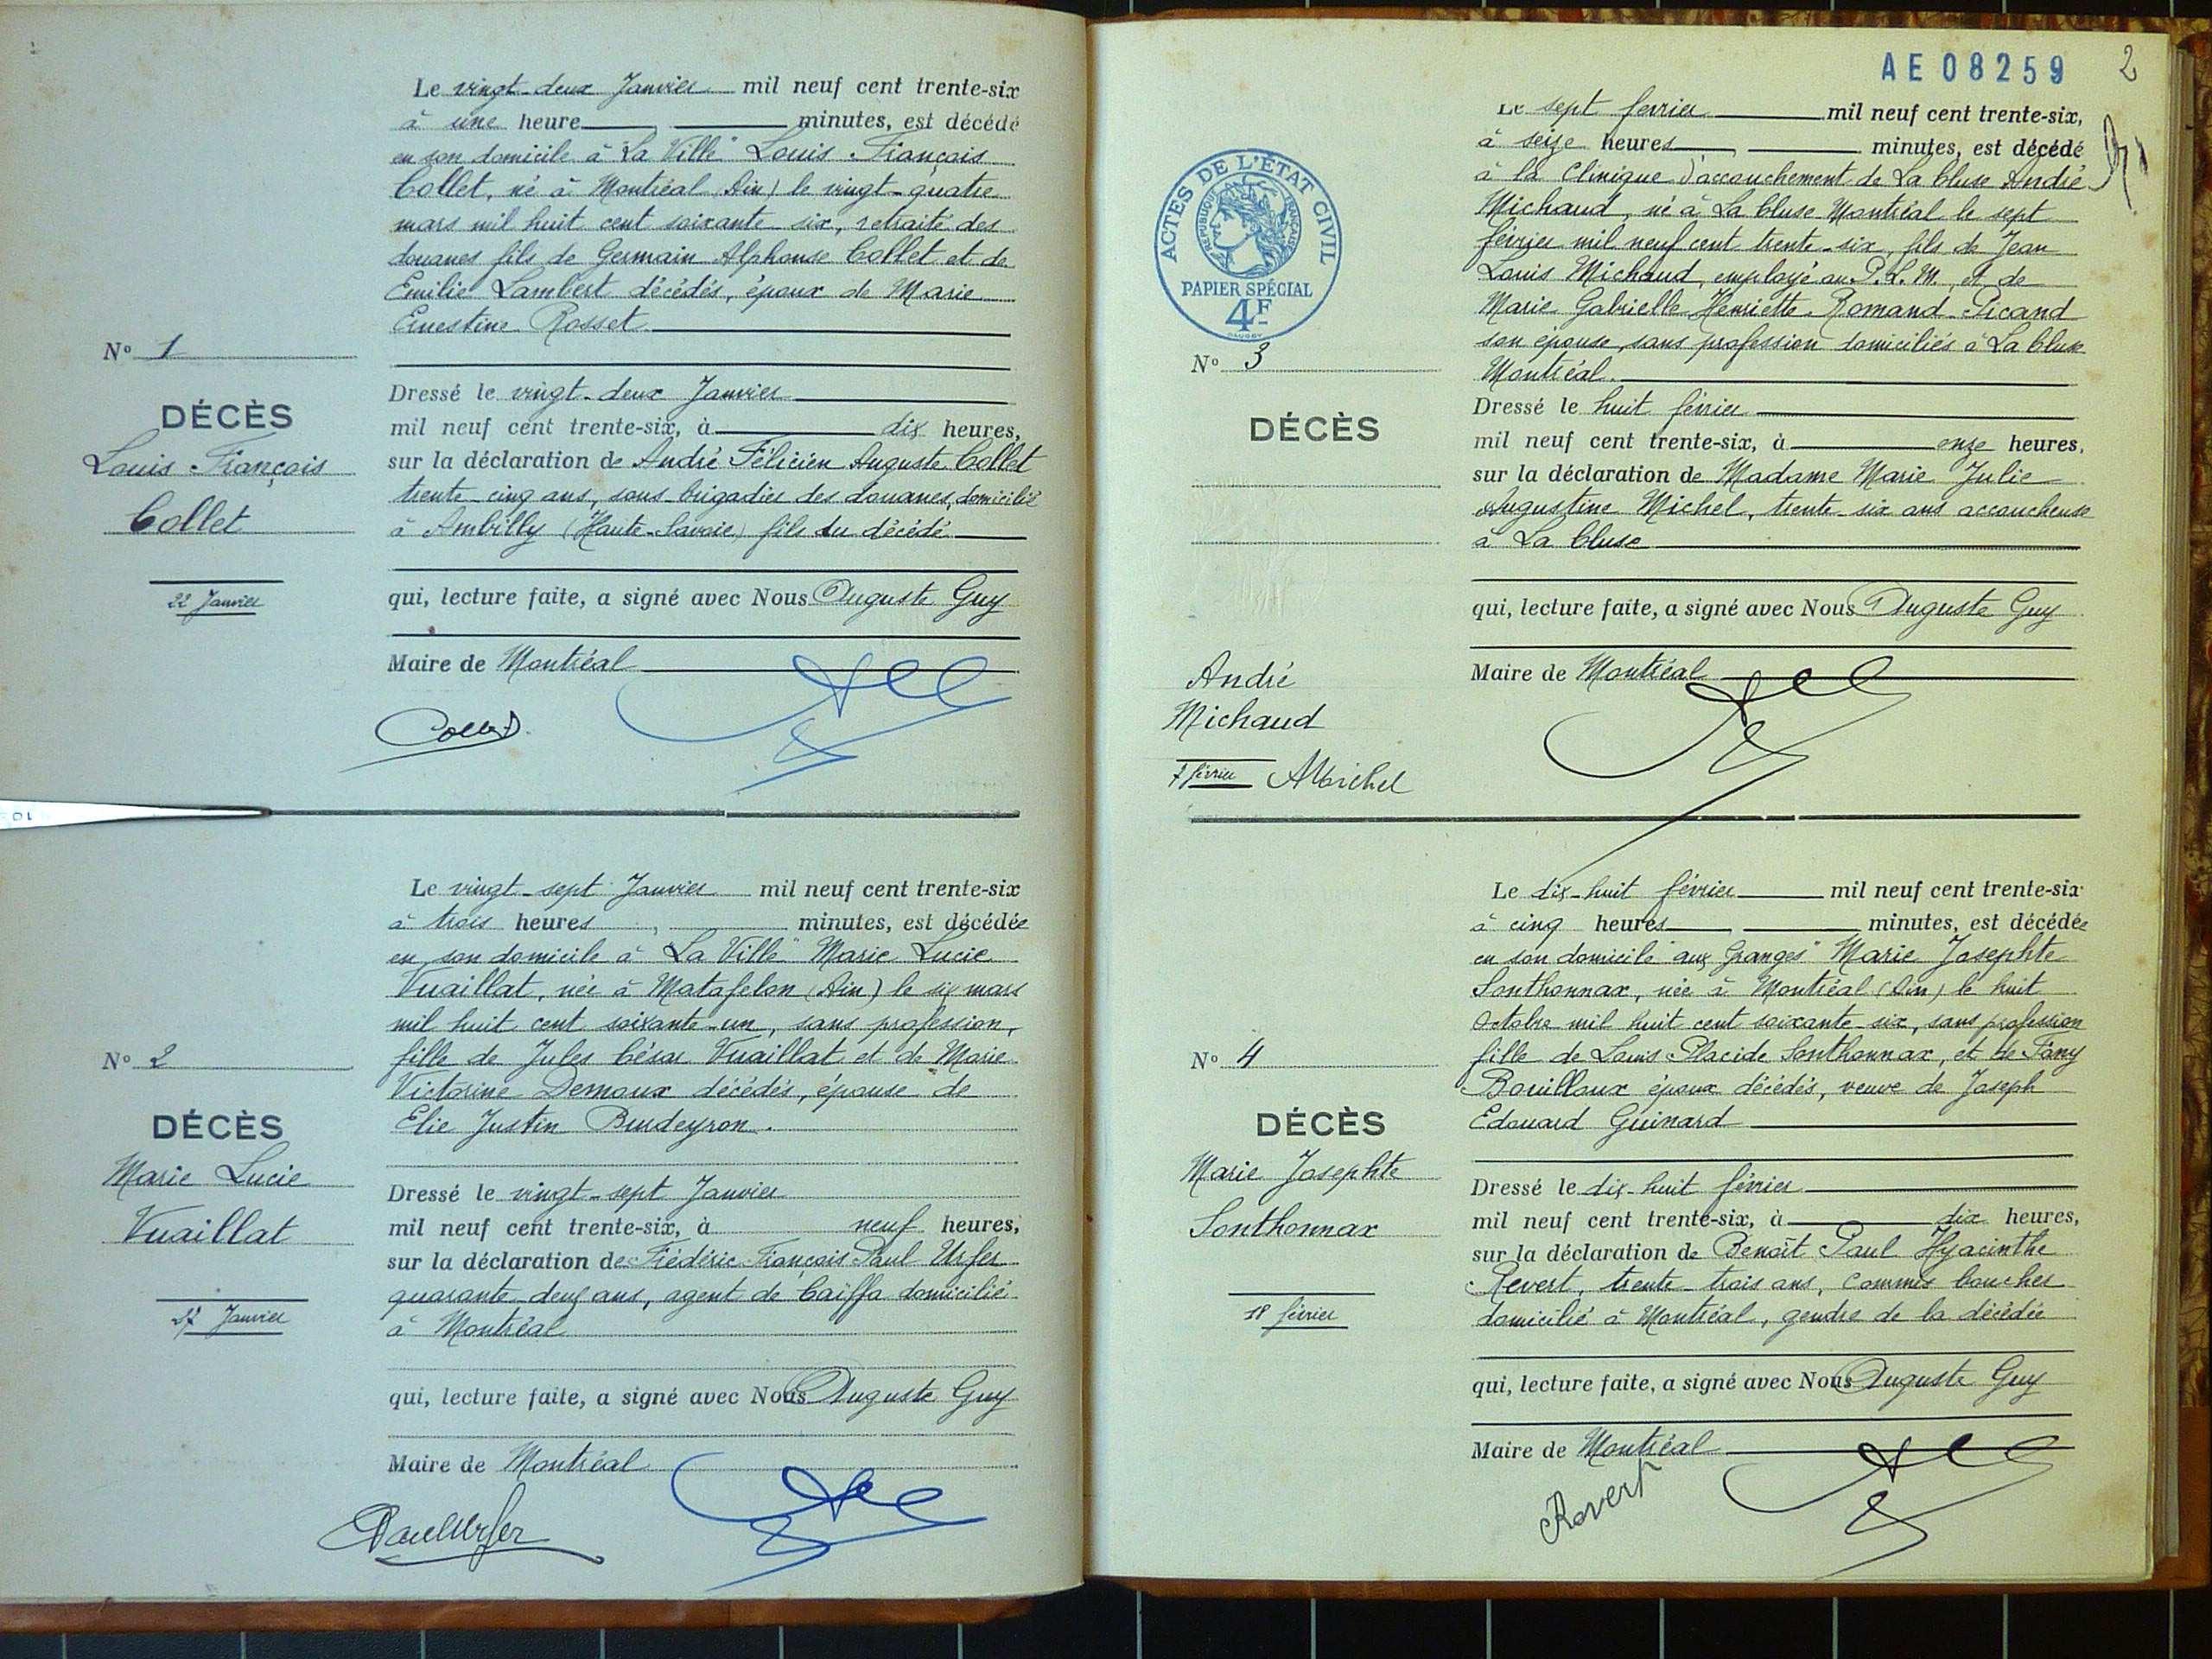 Le vingt-deux Janvier mil neuf cent trente-six
à une heure , minutes, est décédé
en son domicile à "La Ville" Louis François
Collet, né à Montréal (Ain) le vingt-quatre
mars mil huit cent soixante six, retraité des
douanes fils de Germain Alphonse Collet et de
Emilie Lambert décédés, époux de Marie
Ernestine Rosset
Nº 1
DÉCÈS
Louis François
Collet
22 Janvier
Dressé le vingt-deux Janvier
mil neuf cent trente-six, à dix heures,
sur la déclaration de André Félicien Auguste Collet
trente-cinq ans, sous brigadier des douanes, domicilié
à Ambilly (Haute-Savoie) fils du décédé
qui, lecture faite, a signé avec Nous Auguste Guy
Maire de Montréal
Collet
Le vingt-sept Janvier mil neuf cent trente-six
à trois heures , minutes, est décédée
en son domicile à "La Ville" Marie Lucie
Vuaillat, née à Matafelon (Ain) le six mars
mil huit cent soixante-un, sans profession,
fille de Jules César Vuaillat et de Marie
Victorine Demoux décédés, épouse de
Elie Justin Burdeyron.
Nº 2
DÉCÈS
Marie Lucie
Vuaillat
27 Janvier
Dressé le vingt-sept Janvier
mil neuf cent trente-six, à neuf heures,
sur la déclaration de Frédéric François Paul Urfer
quarante-deux ans, agent de Caïffa domicilié
à Montréal
qui, lecture faite, a signé avec Nous Auguste Guy
Maire de Montréal
Paul Urfer
AE 08259
2
Le sept fevrier mil neuf cent trente-six,
à seize heures , minutes, est décédé
à la Clinique d'accouchement de La Cluse André
Michaud, né à La Cluse Montréal le sept
février mil neuf cent trente-six, fils de Jean
Louis Michaud, employé au P.L.M., et de
Marie Gabrielle Henriette Romand-Picand
son épouse, sans profession domiciliés à La Cluse
Montréal.
ACTES DE L'ÉTAT CIVIL
RÉPUBLIQUE FRANÇAISE
PAPIER SPÉCIAL
4F
Nº 3
DÉCÈS
André
Michaud
7 février
Dressé le huit février
mil neuf cent trente-six, à onze heures,
sur la déclaration de Madame Marie Julie
Augustine Michel, trente-six ans accoucheuse
à La Cluse
qui, lecture faite, a signé avec Nous Auguste Guy
Maire de Montréal
AMichel
Le dix-huit février mil neuf cent trente-six
à cinq heures , minutes, est décédée
en son domicile "aux Granges" Marie Josephte
Sonthonnax, née à Montréal (Ain) le huit
Octobre mil huit cent soixante-six, sans profession
fille de Louis Placide Sonthonnax, et de Fany
Bouilloux époux décédés, veuve de Joseph
Edouard Guinard
Nº 4
DÉCÈS
Marie Josephte
Sonthonnax
18 février
Dressé le dix-huit février
mil neuf cent trente-six, à dix heures,
sur la déclaration de Benoît Paul Hyacinthe
Revert, trente-trois ans, commis boucher
domicilié à Montréal, gendre de la décédée
qui, lecture faite, a signé avec Nous Auguste Guy
Maire de Montréal
Revert